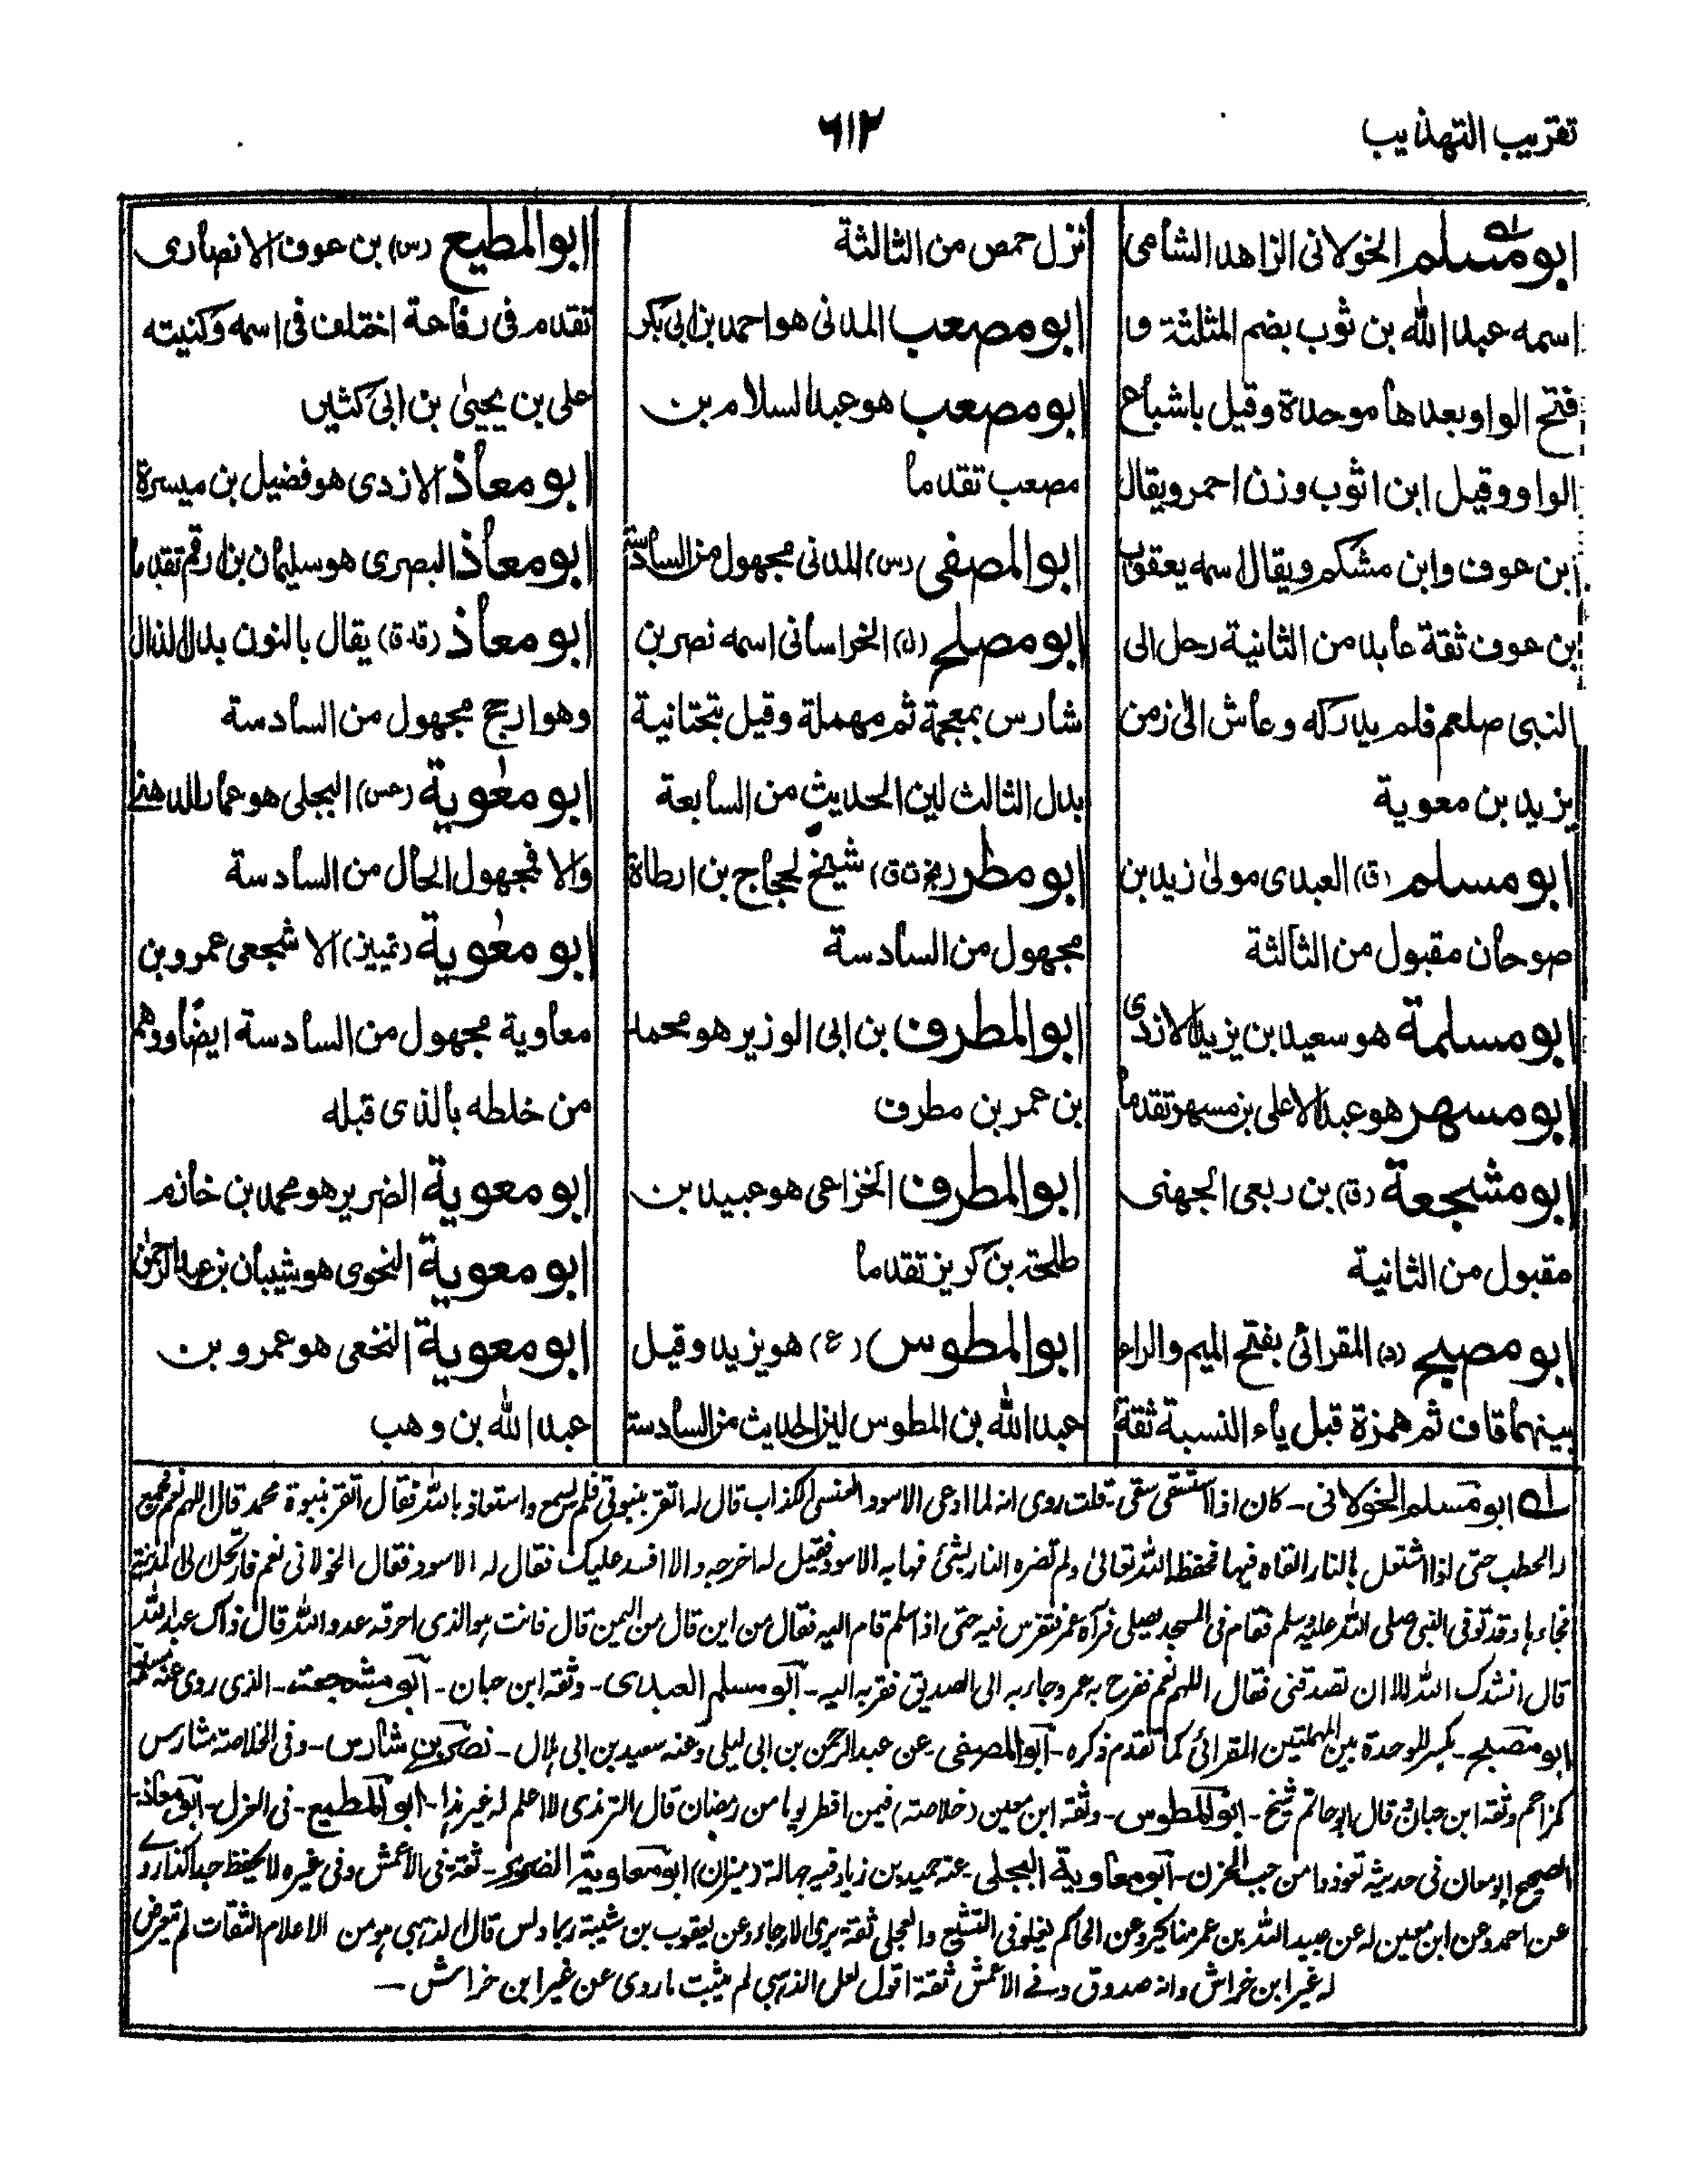 تقريب التهذيب
٦١٢
ابو مسلم الخولانى الزاهد الشامى
اسمه عبد الله بن ثوب بضم المثلثة و
فتح الواو بعدها موحدة وقيل باشباع
الواو وقيل ابن اثوب وزن احمر ويقال
ابن عوف وابن مشكم ويقال اسمه يعقوب
بن عوف ثقة عابد من الثانية رحل الى
النبى صلعم فلم يدركه وعاش الى زمن
يزيد بن معوية
ابو مسلم (ق) العبدى مولى زيد بن
صوحان مقبول من الثالثة
ابو مسلمة هو سعيد بن يزيد الازدى
ابو مسهر هو عبد الاعلى بن مسهر تقدما
ابو مشجعة (ق) بن ربعى الجهنى
مقبول من الثانية
ابو مصبح (د) المقرائى بفتح الميم والراء
بينهما قاف ثم همزة قبل ياء النسبة ثقة
نزل حمص من الثالثة
ابو مصعب المدنى هو احمد بن ابى بكر
ابو مصعب هو عبد السلام بن
مصعب تقدما
ابو المصفى (س) المدنى مجهول من السادسة
ابو مصلح (ل) الخراسانى اسمه نصر بن
شارس بمعجمة ثم مهملة وقيل بتحتانية
بدل الثالث لين الحديث من السابعة
ابو مطر (بخ ت ق) شيخ لحجاج بن ارطاة
مجهول من السادسة
ابو المطرف بن ابى الوزير هو محمد
بن عمر بن مطرف
ابو المطرف الخزاعى هو عبيد بن
طلحة بن كريز تقدما
ابو المطوس (ع) هو يزيد وقيل
عبد الله بن المطوس لين الحديث من السادسة
ابو المطيع (س) بن عوف الانصارى
تقدم فى رفاعة اختلف فى اسمه وكنيته
على بن يحيىٰ بن ابى كثير
ابو معاذ الازدى هو فضيل بن ميسرة
ابو معاذ البصرى هو سليمان بن ارقم تقدما
ابو معاذ (ت ق) يقال بالنون بدل الذال
وهو ارجح مجهول من السادسة
ابو معٰوية (عس) البجلى هو عمار الدهنى
والا فمجهول الحال من السادسة
ابو معٰوية (تمييز) الاشجعى عمرو بن
معاوية مجهول من السادسة ايضًا ووهم
من خلطه بالذى قبله
ابو معوية الضرير هو محمد بن خازم
ابو معوية النحوى هو شيبان بن عبد الرحمٰن
ابو معوية النخعى هو عمرو بن
عبد الله بن وهب
له ابو مسلم الخولانى - كان اذا استسقى سقى - قلت روى انه لما ادعى الاسود العنسى الكذاب قال له اتقر بنبوتى فلم يسمع واستعاذ بالله فقال اتقر بنبوة محمد قال اللهم نعم فجمع
له الحطب حتى اذا اشتعل بالنار القاه فيها فحفظه الله تعالىٰ ولم تضره النار بشئ فهابه الاسود فقيل له اخرجه والا افسد عليك فقال له الاسود فقال الخولانى نعم فارتحل الى المدينة
فجاءها وقد توفى النبى صلى الله عليه وسلم فقام فى المسجد يصلى فرآه عمر فتفرس فيه حتى اذا سلم قام اليه فقال من اين قال من اليمن قال فانت هو الذى احرقه عدو الله قال ذاك عبد الله
قال انشدك الله الا ان تصدقنى فقال اللهم نعم ففرح به عمر وجاء به الى الصديق فقربه اليه - ابو مسلم العبدى - وثقه ابن حبان - ابو مشجعة - الذى روى عنه مسلمة
ابو مصبح - بكسر الموحدة بين المهملتين المقرائى كما تقدم ذكره - ابو المصفى عن عبد الرحمن بن ابى ليلى وعنه سعيد بن ابى هلال - نصر بن شارس - وفى الخلاصة مشارس
كمزاحم وثقه ابن حبان وقال ابو حاتم شيخ - ابو المطوس - وثقه ابن معين (خلاصة) فيمن افطر يوما من رمضان قال الترمذى لا اعلم له غير هذا - ابو المطيع - فى العزل - ابو معاذ -
الصحيح ابو معان فى حديثه تعوذوا من جب الحزن - ابو معاوية البجلى - عنه حميد بن زياد فيه جهالة (ميزان) ابو معاوية الضرير - ثقة فى الاعمش وفى غيره لا يحفظ جيدا كذا روے
عن احمد وعن ابن معين له عن عبيد الله بن عمر مناكير وعن الحاكم يغلو فى التشيع والعجلى ثقة يرى الارجاء وعن يعقوب بن شيبة ربما دلس قال الذهبى هو من الاعلام الثقات لم تعرض
له غير ابن خراش وانه صدوق وفے الاعمش ثقة اقول لعل الذهبى لم يثبت ما روى عن غير ابن خراش —